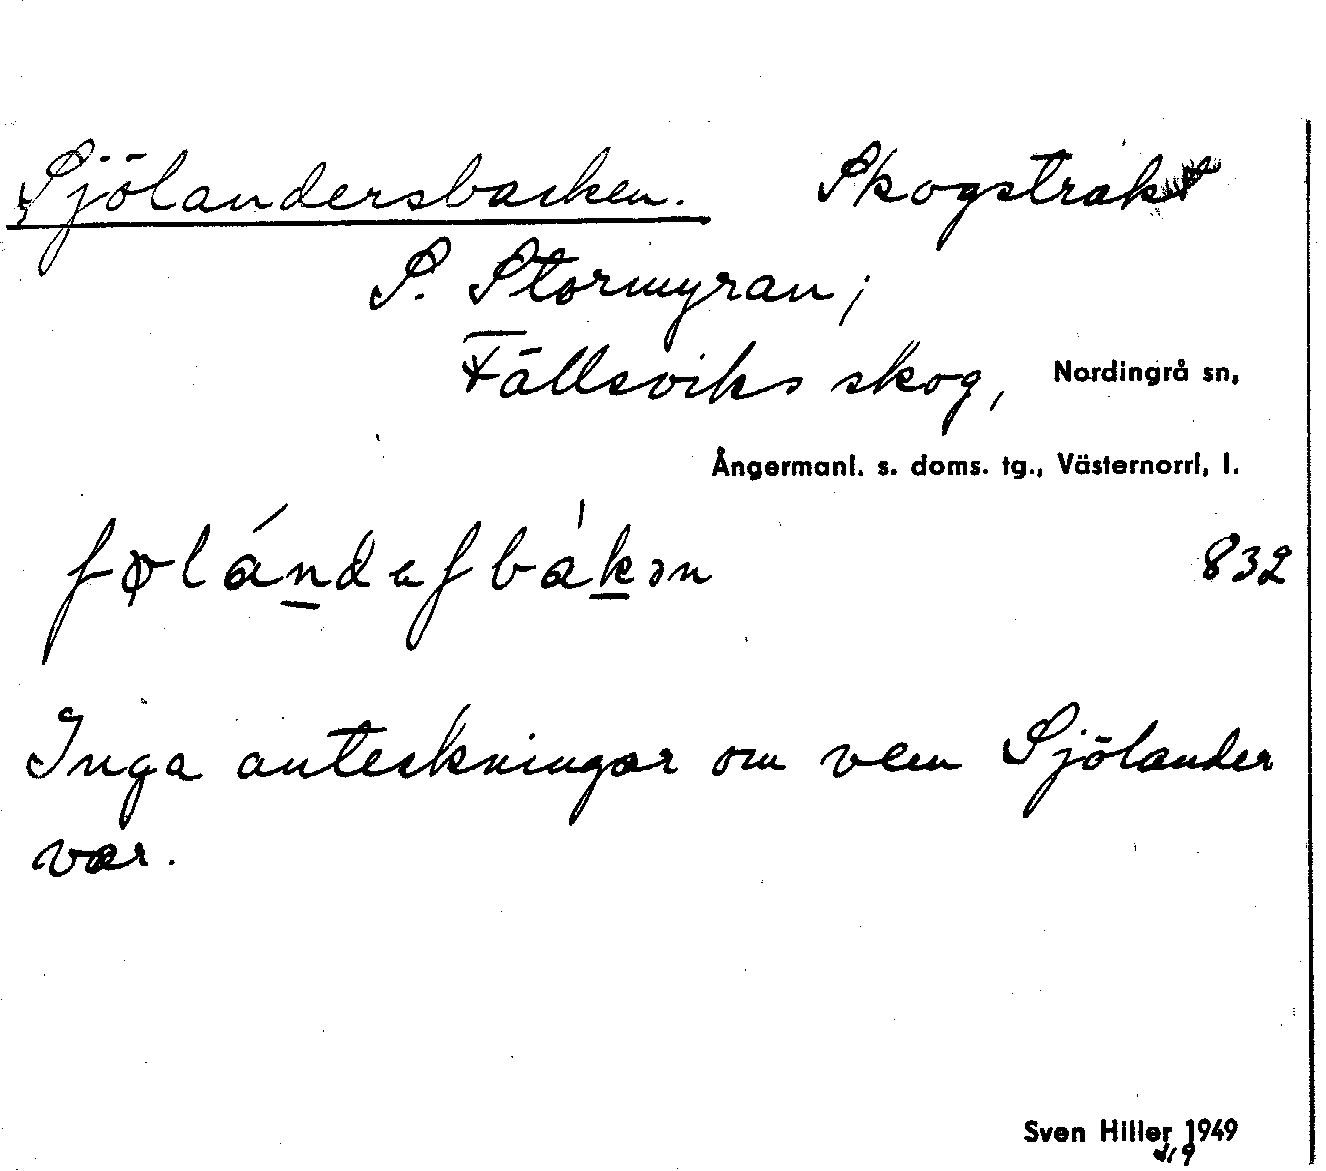 Sjölandersbacken. Skogstrakt
S. Stormyran;
Fällsviks skog, Nordingrå sn,
Ångermanl. s. doms. tg., Västernorrl. l.
832
Inga anteckningar om vem Sjölander
var.
Sven Hiller 1949